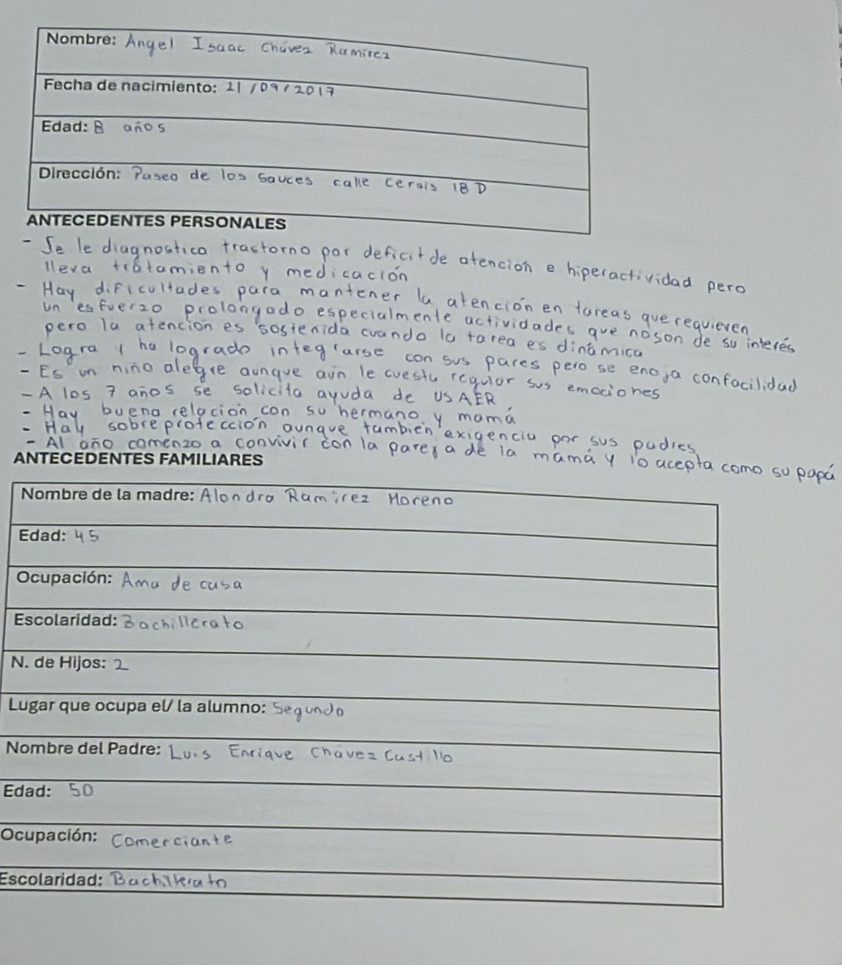 Nombre: Angel Isaac Chávez Ramírez
Fecha de nacimiento: 21/09/2017
Edad: 8 años
Dirección: Paseo de los sauces calle Cerais 18 D
ANTECEDENTES PERSONALES
- Se le diagnostico trastorno por deficit de atención e hiperactividad pero
lleva tratamiento y medicación
- Hay dificultades para mantener la atención en tareas que requieren
un esfuerzo prolongado especialmente actividades que no son de su interés
pero la atención es sostenida cuando la tarea es dinámica
- Logra y ha logrado integrarse con sus pares pero se enoja con facilidad
- Es un niño alegre aunque aún le cuesta regular sus emociones
- A los 7 años se solicita ayuda de USAER
- Hay buena relación con su hermano y mamá
- Hay sobreprotección aunque también exigencia por sus padres
- Al año comenzo a convivir con la pareja de la mamá y lo acepta como su papá
ANTECEDENTES FAMILIARES
Nombre de la madre: Alondra Ramírez Moreno
Edad: 45
Ocupación: Ama de casa
Escolaridad: Bachillerato
N. de Hijos: 2
Lugar que ocupa el/ la alumno: Segundo
Nombre del Padre: Luis Enrique Chávez Castillo
Edad: 50
Ocupación: Comerciante
Escolaridad: Bachillerato